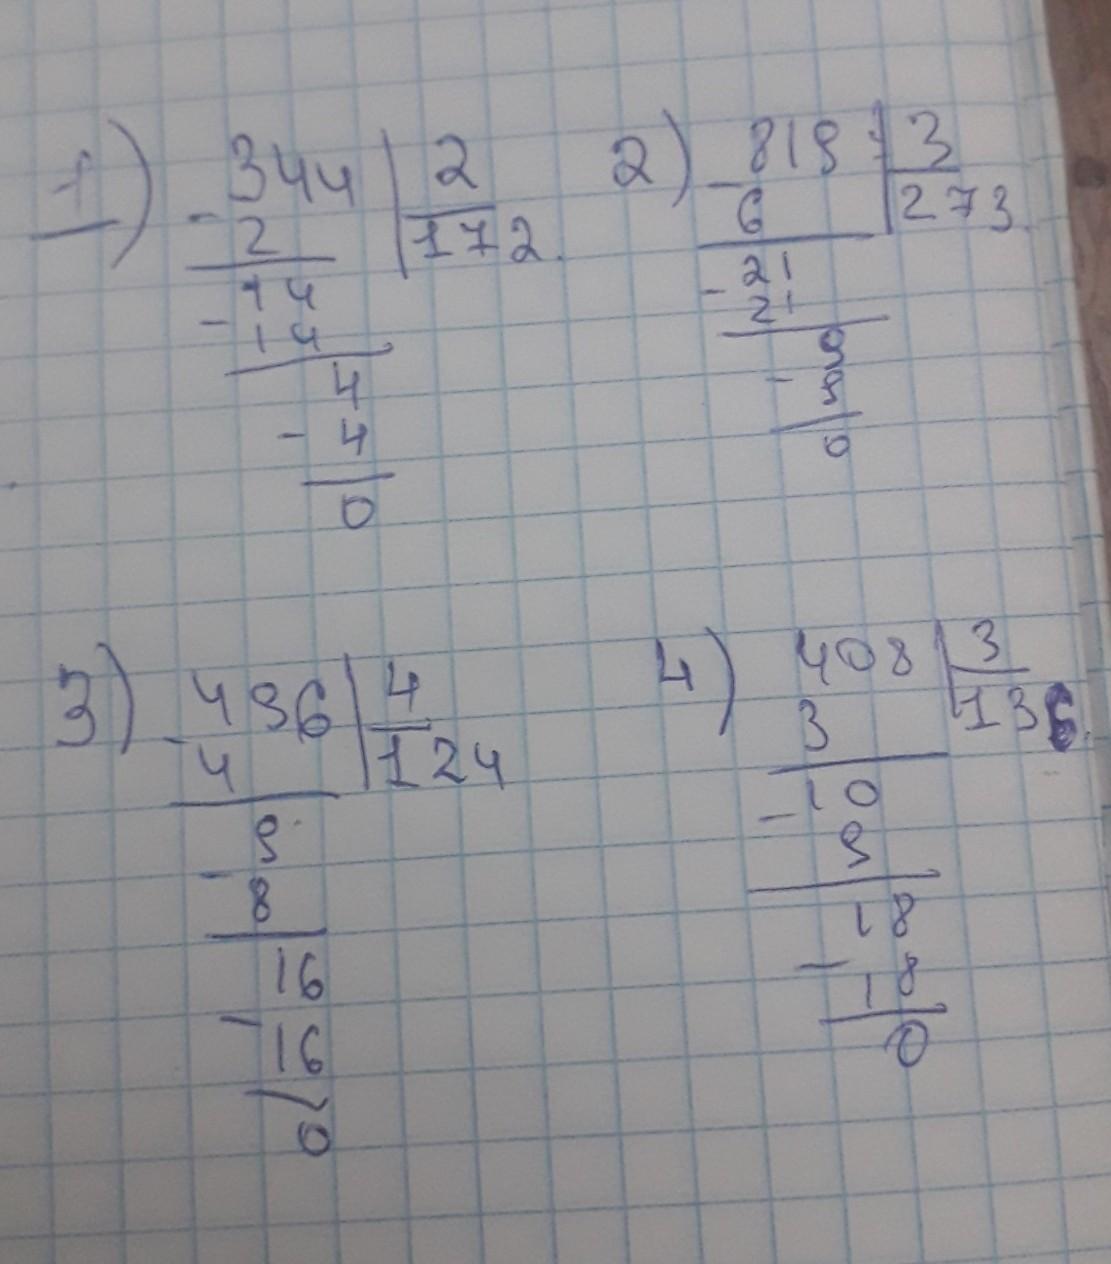 1) 344 | 2
- 2 | 172
14
- 14
4
- 4
0
2) 819 | 3
- 6 | 273
21
- 21
9
- 9
0
3) 496 | 4
- 4 | 124
9
- 8
16
- 16
0
4) 408 | 3
3 | 136
10
- 9
18
- 18
0